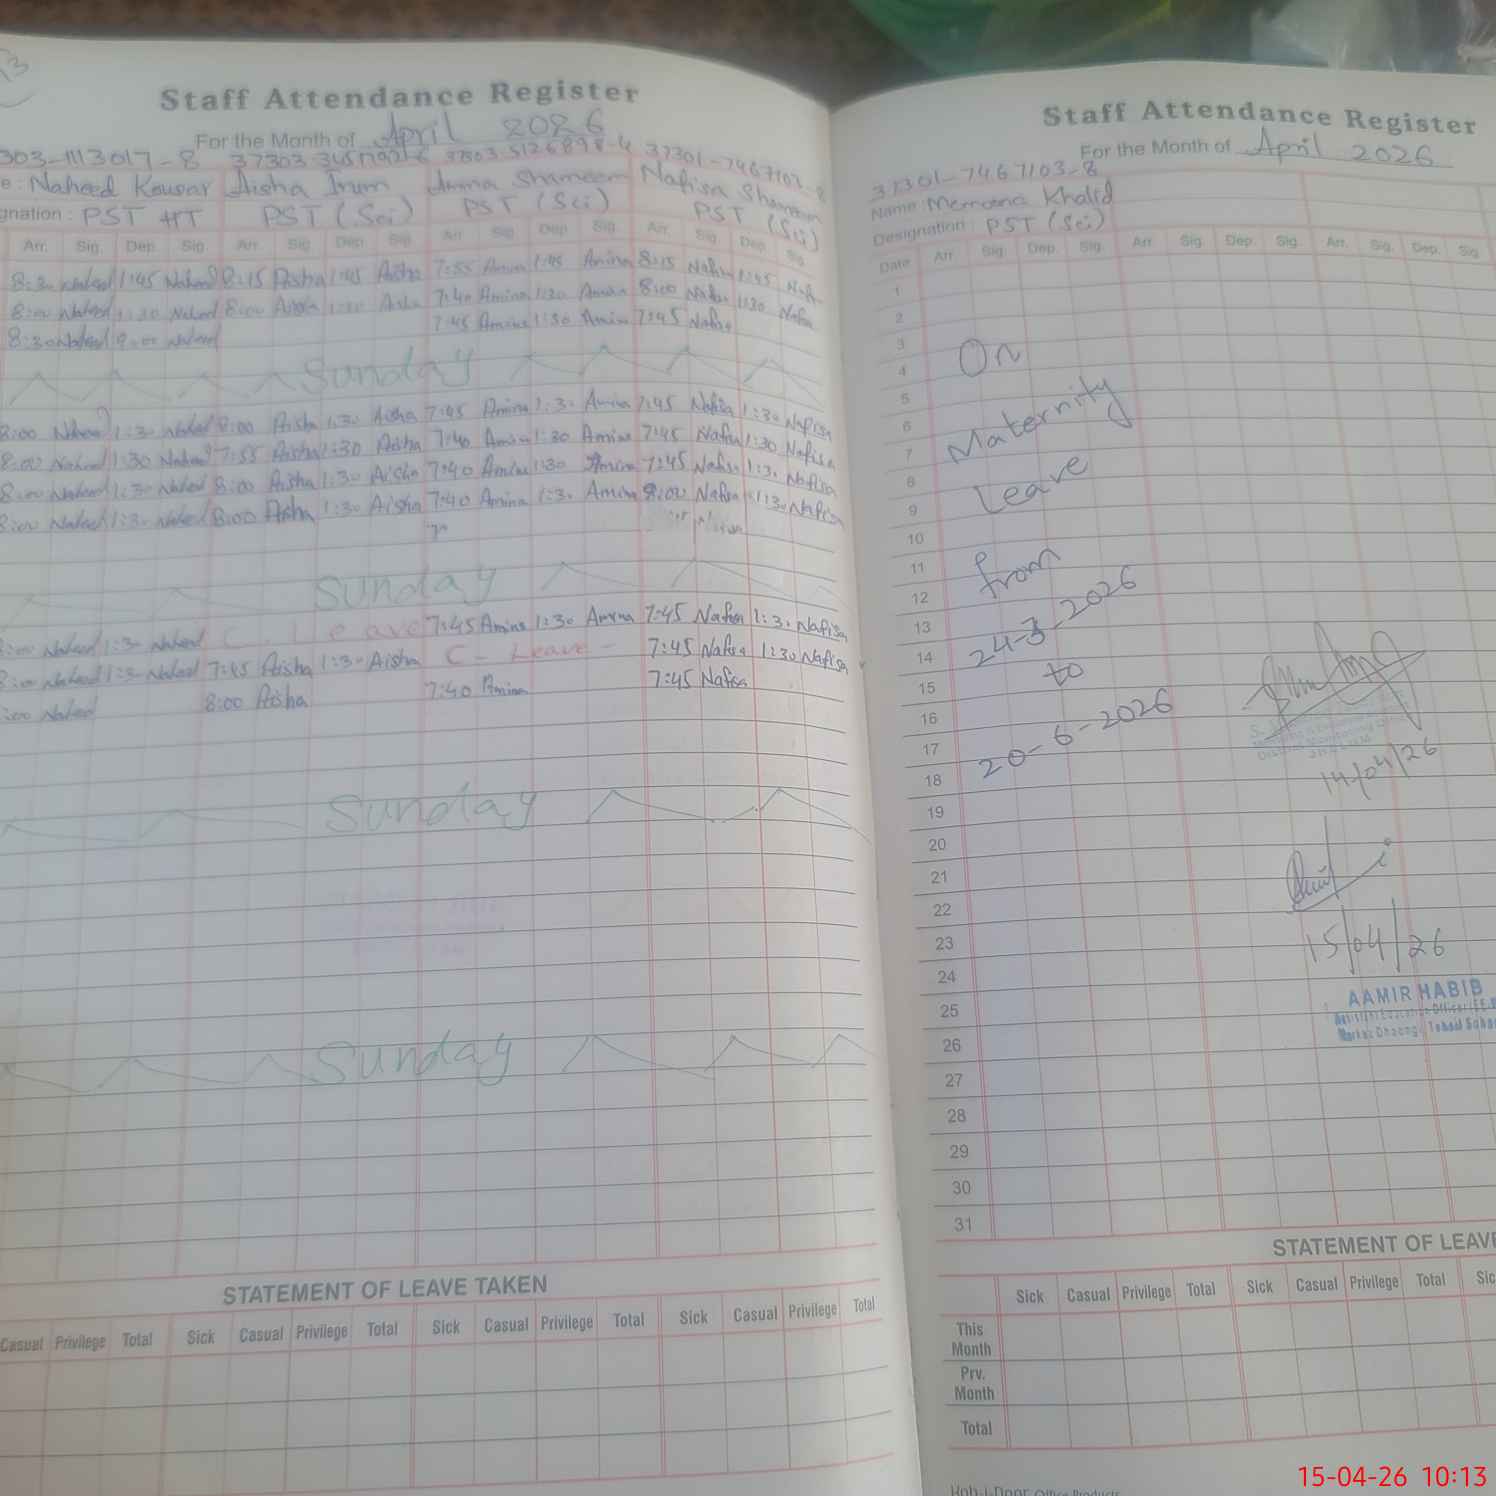 Staff Attendance Register
For the Month of April 2026
303-1113017-8 37303 37301-7467103-8
e: Naheed Kousar Aisha Irum Amna Shameem Nafisa Shameem
gnation: PST HT PST (Sci) PST (Sci) PST (Sci)
Arr. Sig. Dep. Sig. Arr. Sig. Dep. Sig. Arr. Sig. Dep. Sig. Arr. Sig. Dep. Sig.
Naheed 1:45 Naheed 8:15 Aisha 1:45 Aisha 7:55 Amina 1:45 Amina 8:15 Nafisa 1:45
8:00 Naheed 1:30 Naheed 8:00 Aisha 1:30 Aisha 7:40 Amina 1:30 Amina 8:00 Nafisa 1:30 Nafisa
8:30 Naheed 9:00 Naheed 7:45 Amina 1:30 Amina 7:45 Nafisa
Sunday
8:00 Naheed 1:30 Naheed 8:00 Aisha 1:30 Aisha 7:45 Amina 1:30 Amina 7:45 Nafisa 1:30 Nafisa
8:00 Naheed 1:30 Naheed 7:55 Aisha 1:30 Aisha 7:40 Amina 1:30 Amina 7:45 Nafisa 1:30 Nafisa
8:00 Naheed 1:30 Naheed 8:00 Aisha 1:30 Aisha 7:40 Amina 1:30 Amina 7:45 Nafisa 1:30 Nafisa
8:00 Naheed 1:30 Naheed 8:00 Aisha 1:30 Aisha 7:40 Amina 1:30 Amina 8:00 Nafisa 1:30 Nafisa
Sunday
:00 Naheed 1:30 Naheed C. Leave 7:45 Amina 1:30 Amina 7:45 Nafisa 1:30 Nafisa
8:00 Naheed 1:30 Naheed 7:45 Aisha 1:30 Aisha C - Leave - 7:45 Nafisa 1:30 Nafisa
:00 Naheed 8:00 Aisha 7:40 Amina 7:45 Nafisa
Sunday
Sunday
STATEMENT OF LEAVE TAKEN
Casual Privilege Total Sick Casual Privilege Total Sick Casual Privilege Total Sick Casual Privilege Total
Staff Attendance Register
For the Month of April 2026
37301-7467103-8
Name: Memoona Khalid
Designation: PST (Sci)
Date Arr. Sig. Dep. Sig. Arr. Sig. Dep. Sig. Arr. Sig. Dep. Sig
1
2
3
4
5
6
7
8
9
10
11
12
13
14
15
16
17
18
19
20
21
22
23
24
25
26
27
28
29
30
31
On
Maternity
Leave
from
24-3-2026
to
20-6-2026
14/04/26
15/04/26
AAMIR HABIB
Assistant Education Officer
Markaz Dhoong Tehsil Soha
STATEMENT OF LEAVE
Sick Casual Privilege Total Sick Casual Privilege Total Sic
This Month
Prv. Month
Total
Office Products
15-04-26 10:13